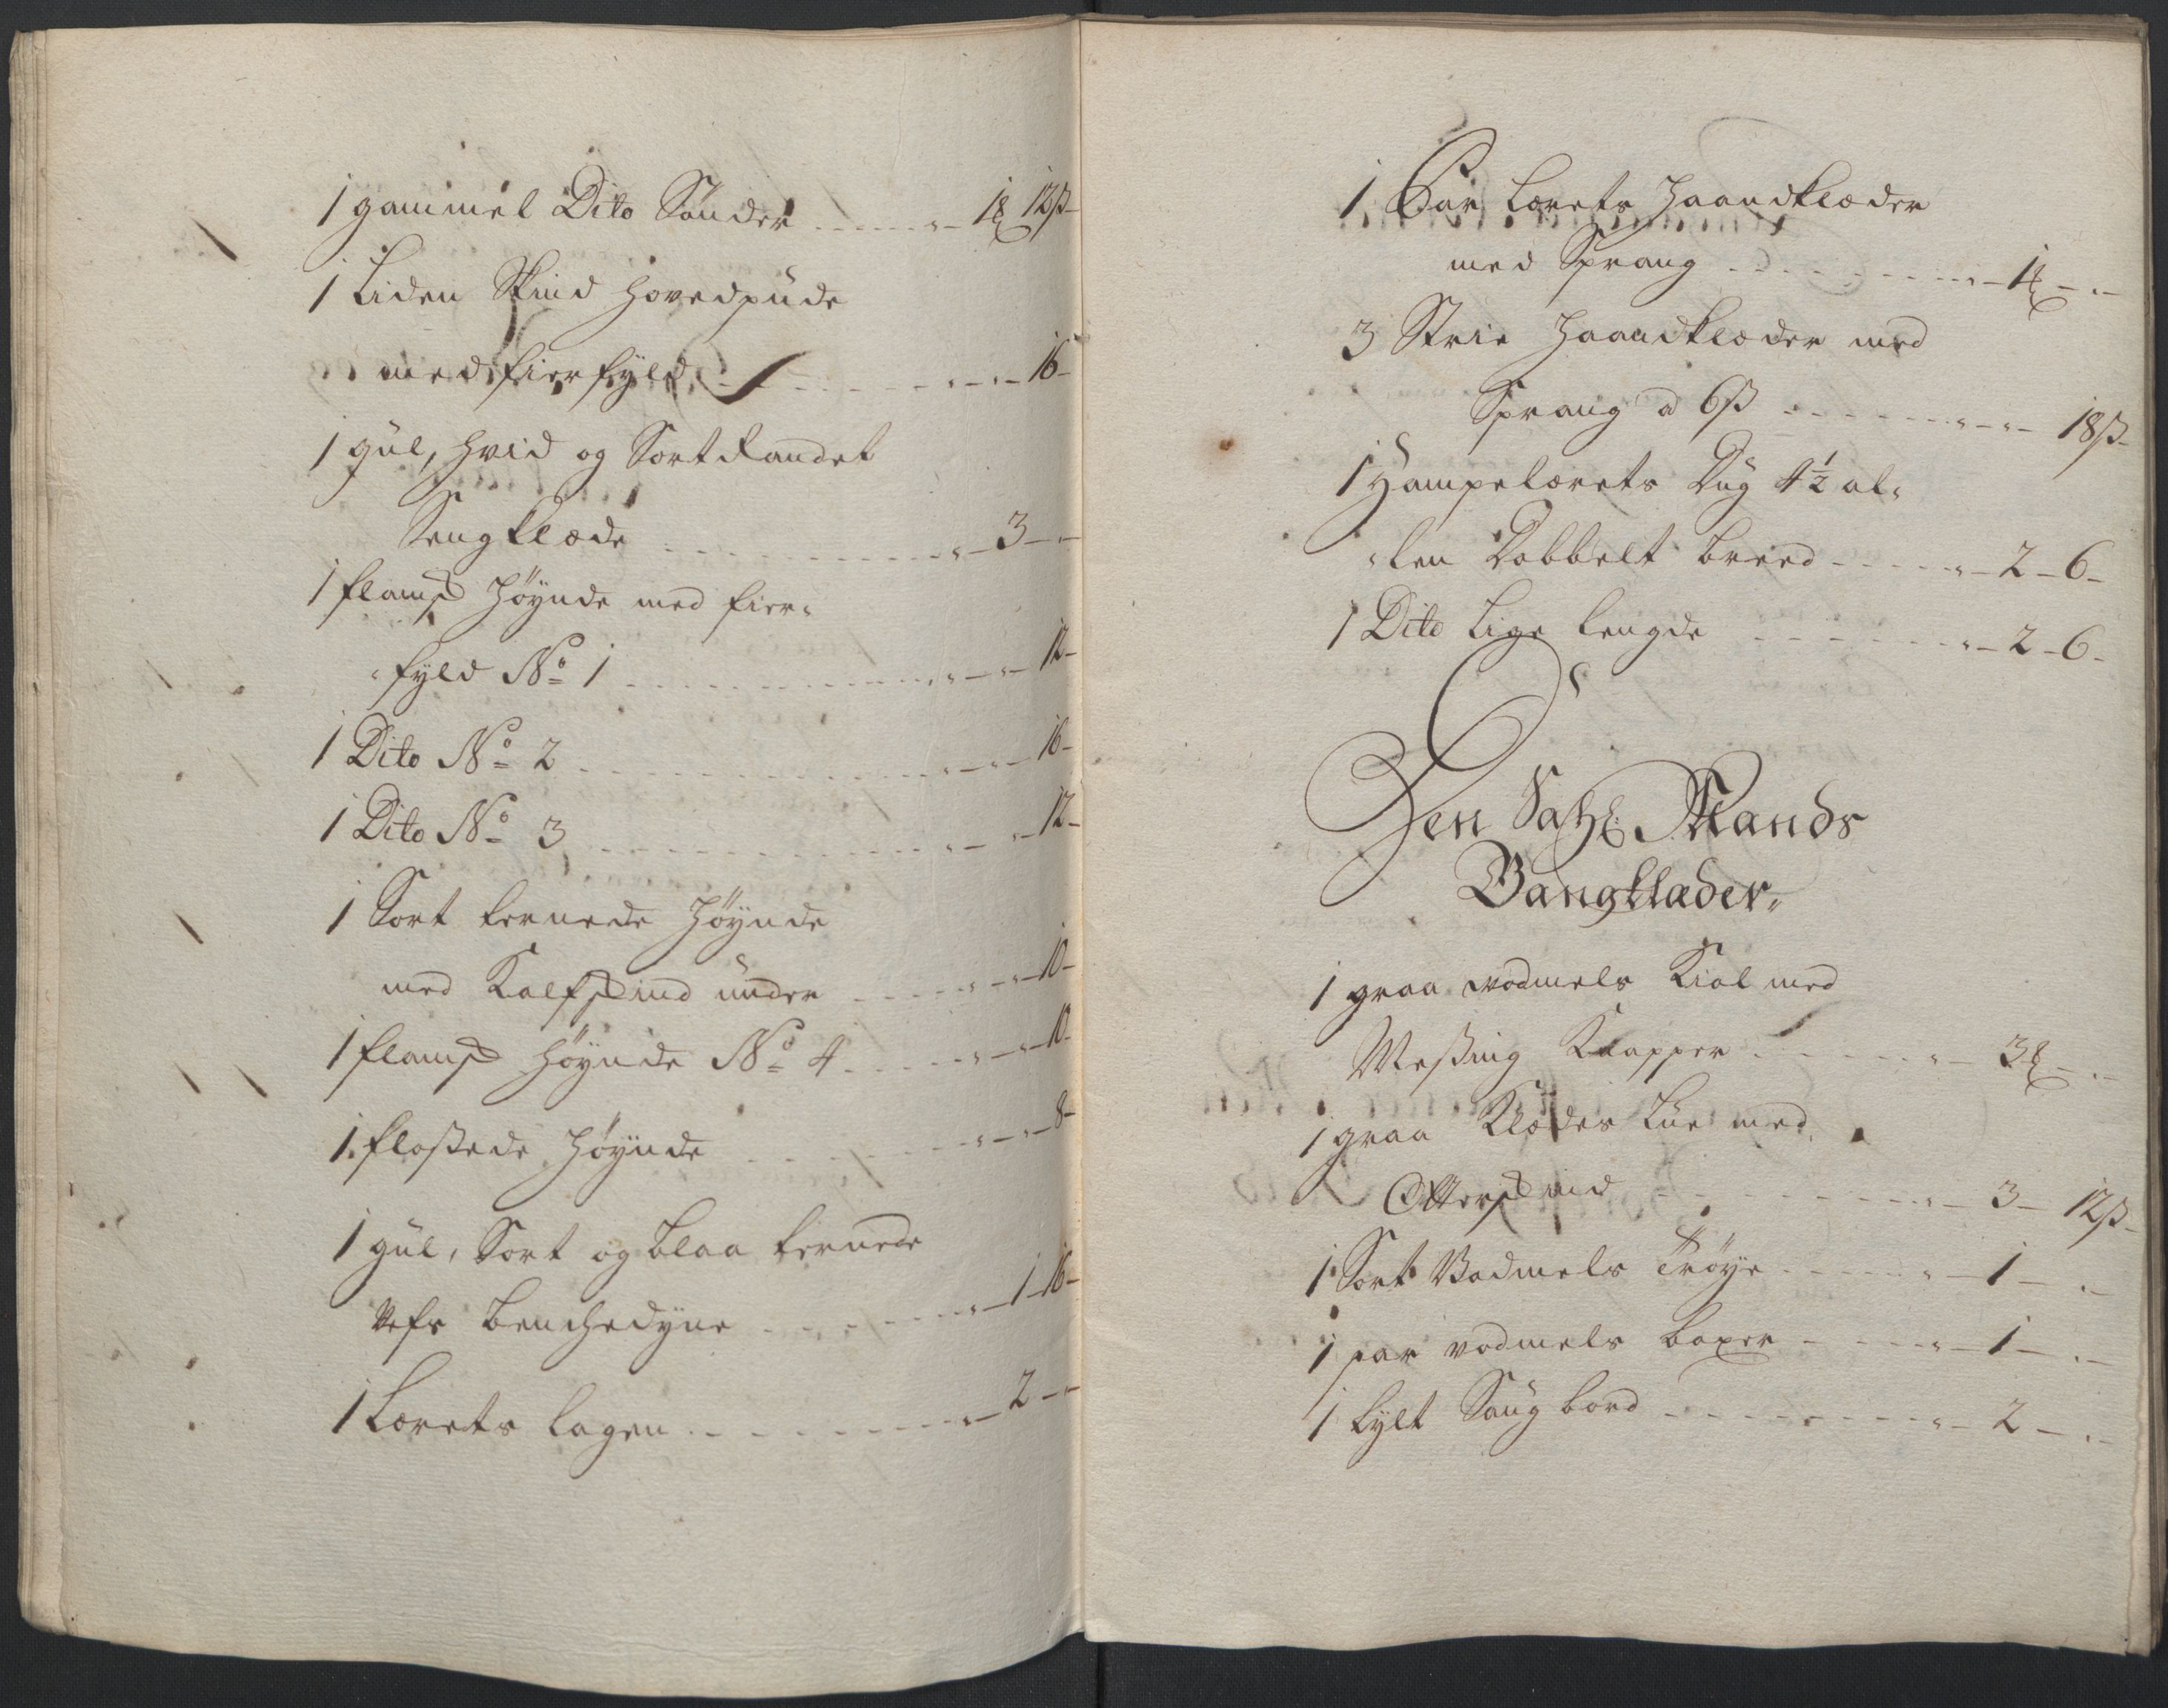 1 gammel Dito Sønder - - - - 1 ℳ 12 ß
1 Liden Skind hovedpude
med fierfyld - - - - 16 -
1 gul, hvid og Sort Randet
Sengklæde - - - - 3 - -
1 flamsk Høynde med fier-
fyld No 1 - - - - 12 -
1 Dito No 2 - - - - 16 -
1 Dito No 3 - - - - 12 -
1 Sort ternede Høynde
med Kalfskind under - - - - 10 -
1 flamsk Høynde No 4 - - - - 10 -
1 flossede Høynde - - - - 8 -
1 gul, Sort og blaa ternede
Vefs benchedyne - - - - 1 - 16 -
1 Lærets lagen - - - - 2 - -
1 Par Lærets Haandklæder
med Sprang - - - - 1 ℳ - -
3 Strie Haandklæder med
Sprang a 6 ß - - - - 18 ß
1 Hampelærets Dug 4 1/2 al-
len Dobbelt breed - - - - 2 - 6 -
1 Dito Lige lengde - - - - 2 - 6 -
Den Sahl: Mands
Gangklæder
1 graa vadmels Kiol med
Messing Knapper - - - - 3 ℳ - -
1 graa Klædes Lue med
Otterskind - - - - 3 - 12 ß
1 Sort Vadmels Trøye - - - - 1 - -
1 par vadmels boxer - - - - 1 - -
1 fylt Saugbord - - - - 2 - -